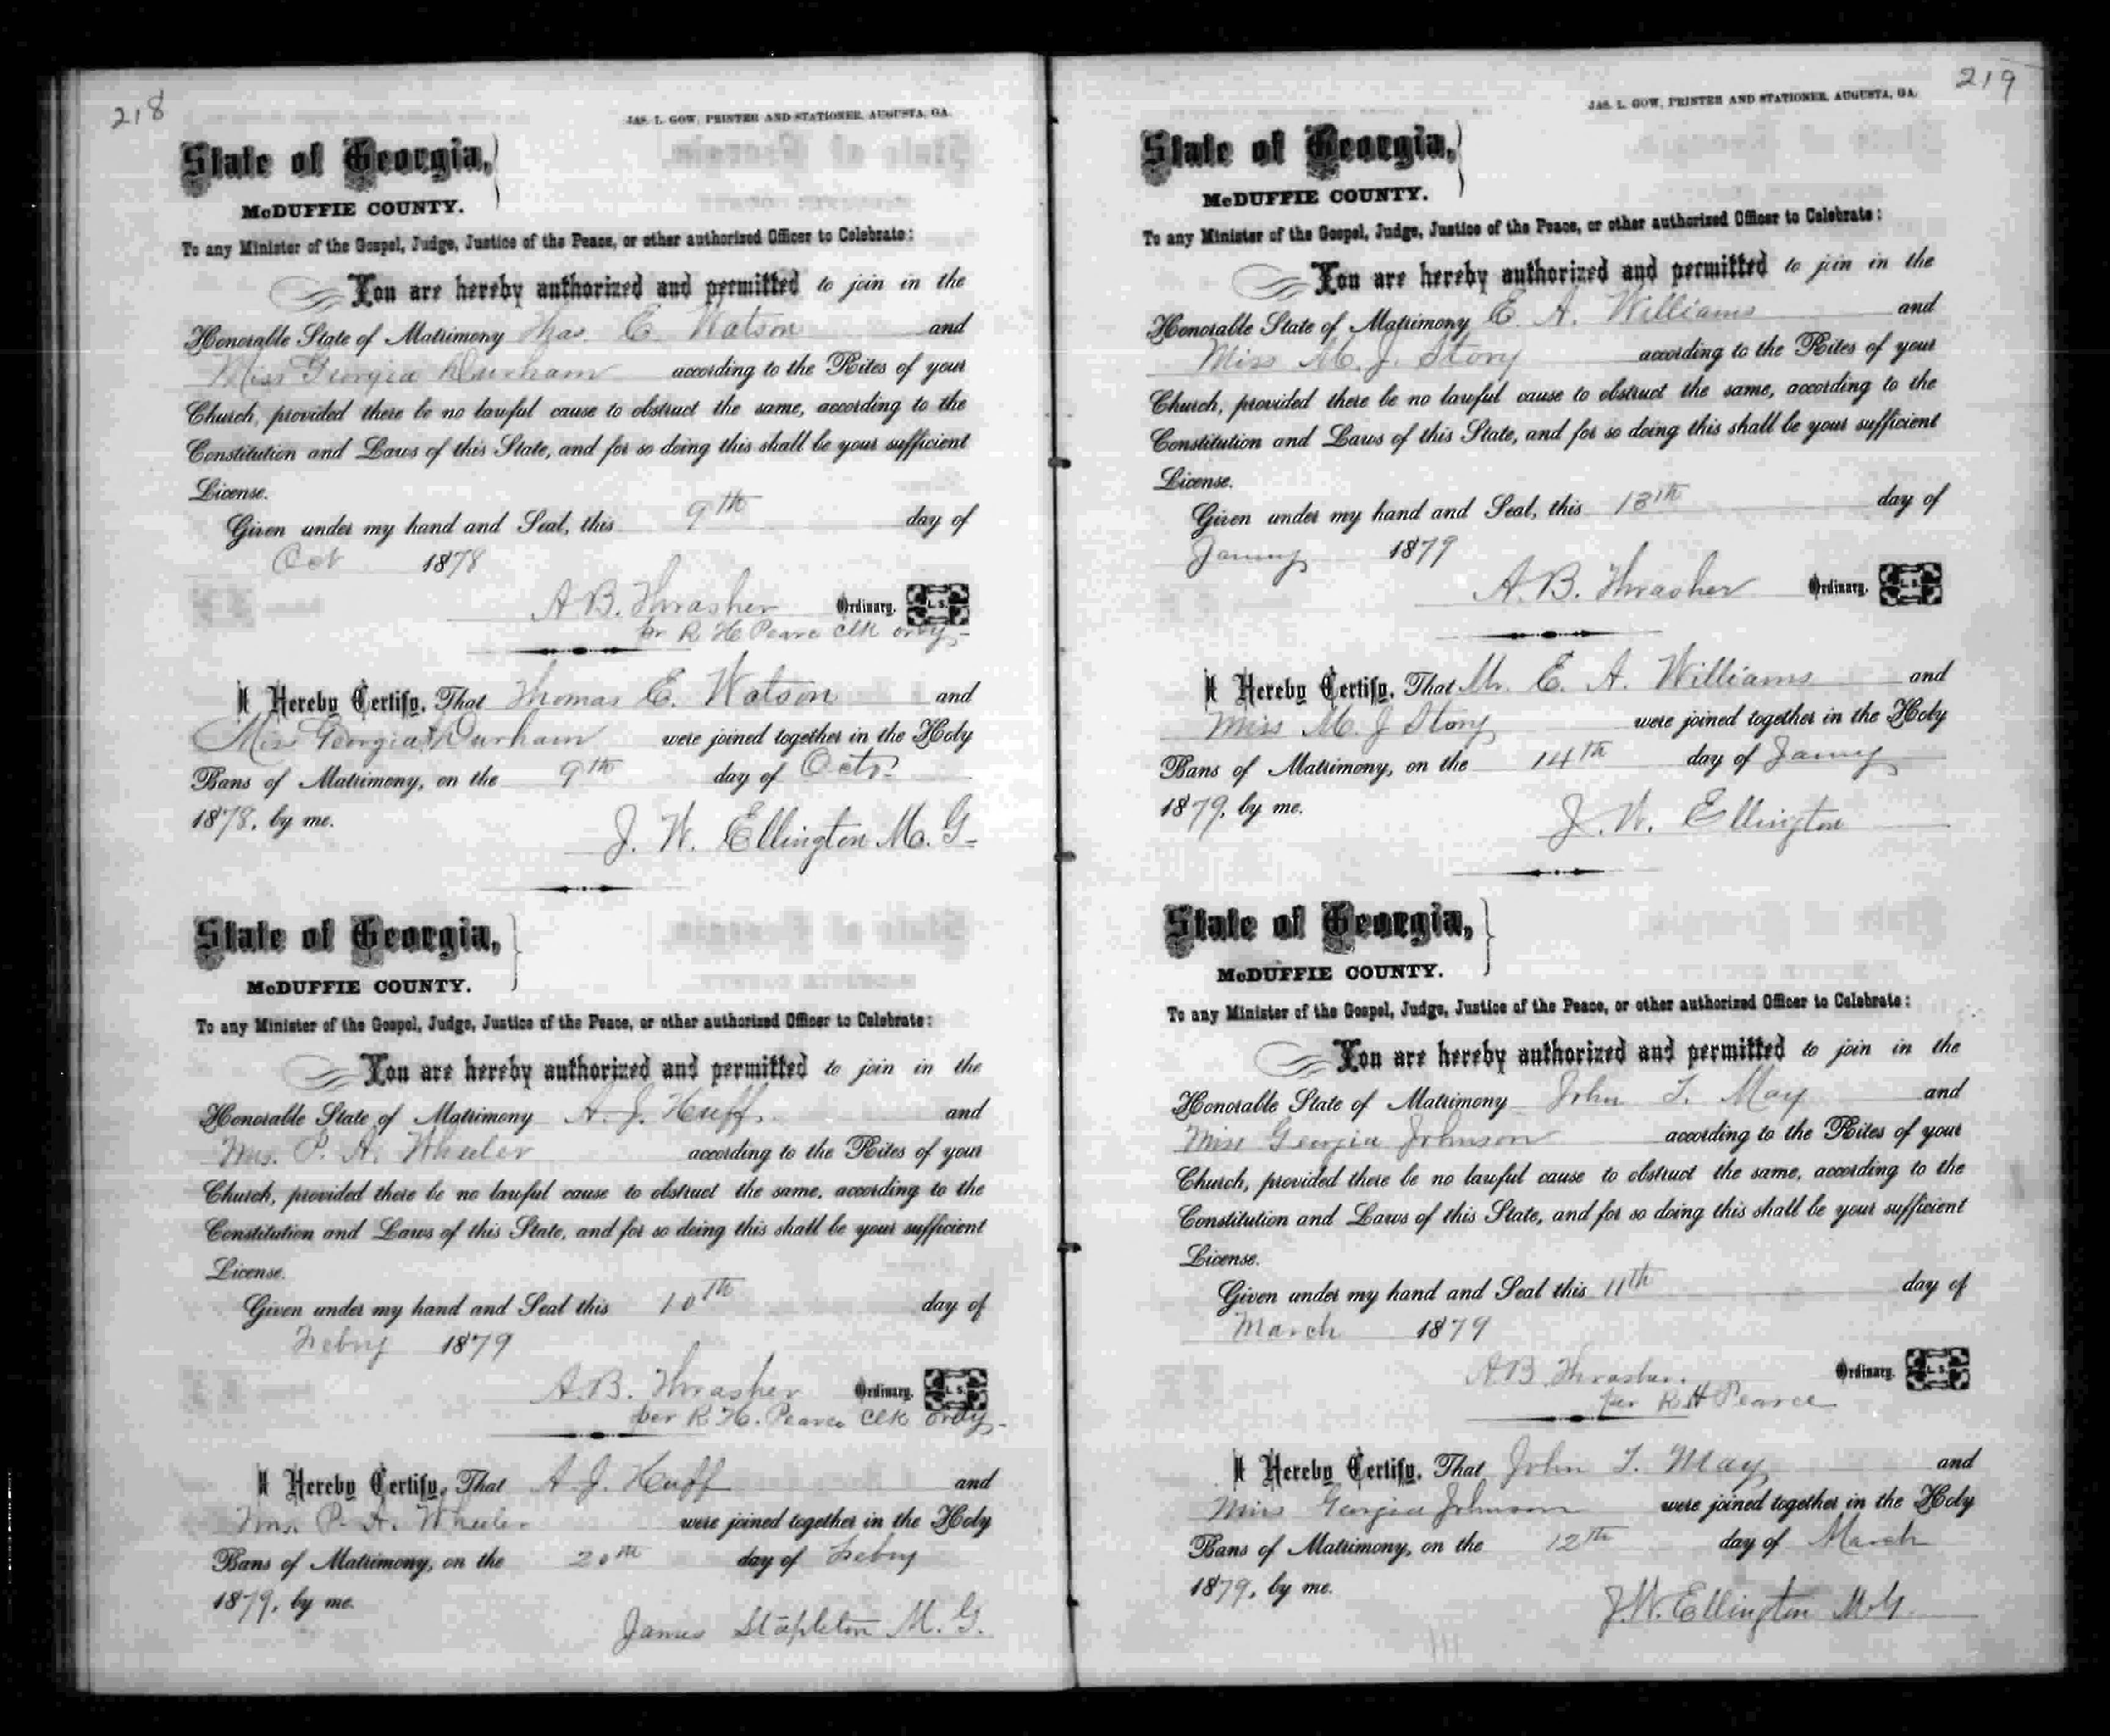 218
JAS. L. GOW, PRINTER AND STATIONER, AUGUSTA, GA.
State of Georgia,
McDUFFIE COUNTY.
To any Minister of the Gospel, Judge, Justice of the Peace, or other authorized Officer to Celebrate:
You are hereby authorized and permitted to join in the
Honorable State of Matrimony Thos. E. Watson and
Miss Georgia Durham according to the Rites of your
Church, provided there be no lawful cause to obstruct the same, according to the
Constitution and Laws of this State, and for so doing this shall be your sufficient
License.
Given under my hand and Seal, this 9th day of
Oct 1878
A B. Thrasher Ordinary. L. S.
pr R H Pearce clk ordy
I Hereby Certify, That Thomas E. Watson and
Miss Georgia Durham were joined together in the Holy
Bans of Matrimony, on the 9th day of Octr.
1878, by me.
J. W. Ellington M. G.
State of Georgia,
McDUFFIE COUNTY.
To any Minister of the Gospel, Judge, Justice of the Peace, or other authorized Officer to Celebrate:
You are hereby authorized and permitted to join in the
Honorable State of Matrimony A. J. Huff and
Mrs. P. A. Wheeler according to the Rites of your
Church, provided there be no lawful cause to obstruct the same, according to the
Constitution and Laws of this State, and for so doing this shall be your sufficient
License.
Given under my hand and Seal this 10th day of
Febry 1879
A. B. Thrasher Ordinary. L. S.
per R. H. Pearce clk ordy
I Hereby Certify, That A J. Huff and
Mrs. P. A. Wheeler were joined together in the Holy
Bans of Matrimony, on the 20th day of Febry
1879, by me.
James Stapleton M. G.
219
JAS. L. GOW, PRINTER AND STATIONER, AUGUSTA, GA.
State of Georgia,
McDUFFIE COUNTY.
To any Minister of the Gospel, Judge, Justice of the Peace, or other authorized Officer to Celebrate:
You are hereby authorized and permitted to join in the
Honorable State of Matrimony E. A. Williams and
Miss M. J. Story according to the Rites of your
Church, provided there be no lawful cause to obstruct the same, according to the
Constitution and Laws of this State, and for so doing this shall be your sufficient
License.
Given under my hand and Seal, this 13th day of
Janny 1879
A. B. Thrasher Ordinary. L. S.
I Hereby Certify, That Mr. E. A. Williams and
Miss M. J Story were joined together in the Holy
Bans of Matrimony, on the 14th day of Janny
1879, by me.
J. W. Ellington
State of Georgia,
McDUFFIE COUNTY.
To any Minister of the Gospel, Judge, Justice of the Peace, or other authorized Officer to Celebrate:
You are hereby authorized and permitted to join in the
Honorable State of Matrimony John T. May and
Miss Georgia Johnson according to the Rites of your
Church, provided there be no lawful cause to obstruct the same, according to the
Constitution and Laws of this State, and for so doing this shall be your sufficient
License.
Given under my hand and Seal this 11th day of
March 1879
A B. Thrasher. Ordinary. L. S.
per R H Pearce
I Hereby Certify, That John T. May and
Miss Georgia Johnson were joined together in the Holy
Bans of Matrimony, on the 12th day of March
1879, by me.
J. W. Ellington M. G.